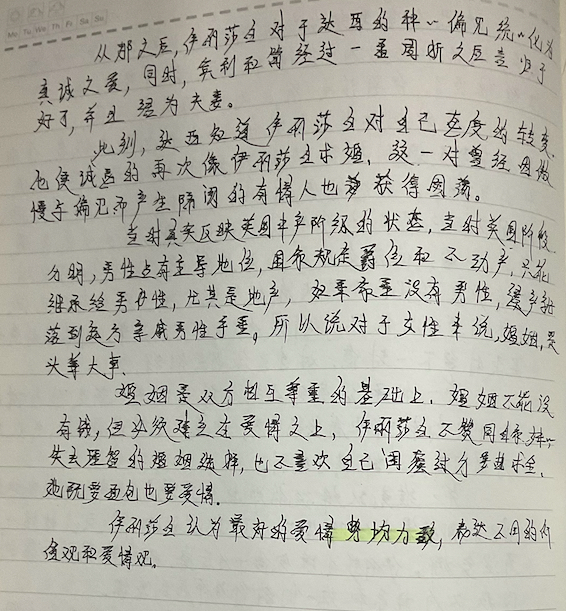 Mo Tu We Th Fr Sa Su
从那之后,伊丽莎白对于达西的种种偏见统统化为
真诚之爱,同时,宾利和简经过一番周折之后言归于
好了,并且结为夫妻。
此刻,达西知道伊丽莎白对自己态度的转变,
他便诚恳的再次像伊丽莎白求婚,这一对曾经因傲
慢与偏见而产生隔阂的有情人也获得圆满。
当时真实反映英国中产阶级的状态,当时英国阶级
分明,男性占有主导地位,国家规定爵位和不动产,只能
继承给男性,尤其是地产,如果家里没有男性,遗产就
落到远方亲戚男性手里。所以说对于女性来说,婚姻,是
头等大事。
婚姻是双方相互尊重的基础上,婚姻不能没
有钱,但必须建立在爱情之上,伊丽莎白不赞同
失去理智的婚姻选择,也不喜欢自己因为委曲求全。
她既要面包也要爱情。
伊丽莎白认为最好的爱情势均力敌,表达不同的价
值观和爱情观。